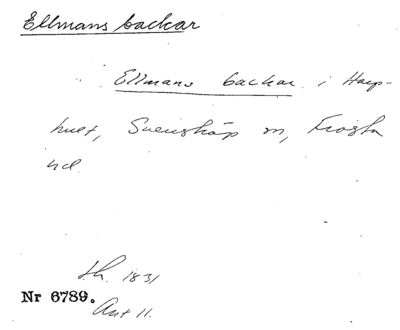 Ellmans backar
Ellmans backar i Harp-
huset, Svensköp sn, Frosta
hd.
Lh. 1831
Nr 6789.
Ant 11.